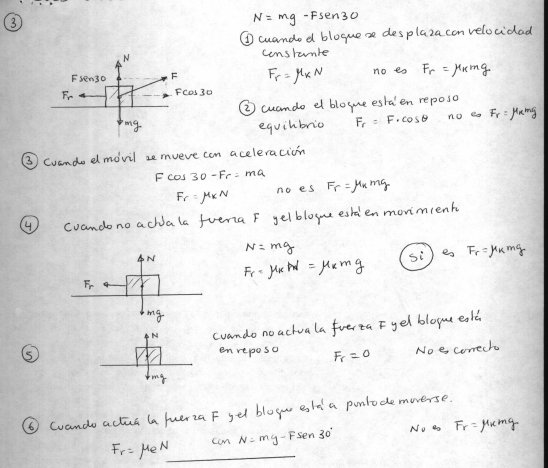 ③
N = mg - Fsen30
① cuando el bloque se desplaza con velocidad
constante
Fr = μK N no es Fr = μK mg.
N
Fsen30
F
Fr
Fcos30
mg
② cuando el bloque está en reposo
equilibrio Fr = F·cosθ no es Fr = μK mg
③ Cuando el móvil se mueve con aceleración
F cos 30 - Fr = ma
Fr = μK N no es Fr = μK mg
④ Cuando no actúa la fuerza F y el bloque está en movimiento
N
Fr
mg
N = mg
Fr = μK N = μK mg Si es Fr = μK mg
⑤
N
mg
Cuando no actua la fuerza F y el bloque está
en reposo Fr = 0 No es correcto
⑥ Cuando actúa la fuerza F y el bloque está a punto de moverse.
Fr = μe N con N = mg - Fsen 30° No es Fr = μK mg